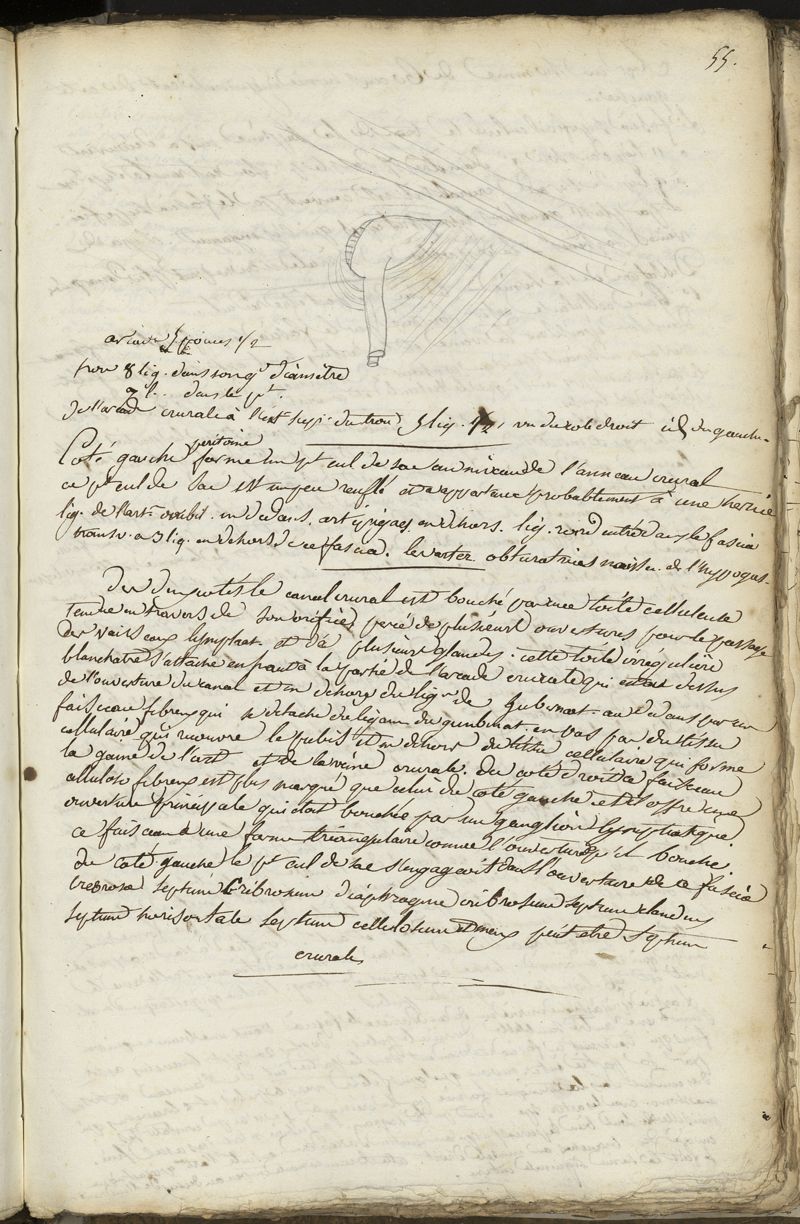 55.
arcade 5 pouces 1/2
trou 8 lig. dans son gd diamètre
7 l. dans le pt.
de l'arcade crurale à l'ext. supr. du trou 5 lig. 1/2, vu du coté droit id. du gauche.
Coté gauche péritoine forme un pt cul de sac au niveau de l'anneau crural
ce pt cul de sac est un peu renflé et a appartenu probablement à une hernie
lig. de l'art. ombil. en dedans. art. épigas. en dehors. lig. rond entré dans le fascia
transv. a 3 lig. en dehors de ce fascia. les arter. obturatrices naissn. de l'hypogas-
Des deux cotés le canal crural est bouché par une toile celluleuse
tendue en travers de son orifice, percé de plusieurs ouvertures pour le passage
des vaisseaux lymphat. et de plusieurs glandes. cette toile irrégulière
blanchatre s'attache en haut à la partie de l'arcade crurale qui est au dessus
de l'ouverture du canal et en dehors du lig. de Gibernat. au dedans par un
faisceau fibreux qui se detache du ligam. de gimbernat en bas par du tissu
cellulaire qui recouvre le pubis et en dehors du tissu cellulaire qui forme
la gaine de l'art. et de la veine crurale. du coté droit ce faisceau
celluloso fibreux est plus marqué que celui du coté gauche et il offre une
ouverture principale qui étoit bouchée par un ganglion lymphatique
ce faisceau a une forme triangulaire comme l'ouverture qu'il bouche.
du coté gauche le pt cul de sac s'engageoit dans l'ouverture de ce fascia
crebrosa septum Cribrosum diaphragme cribrosum septum claudens
septum horisontale septum cellulosum et mieux peut etre septum
crurale